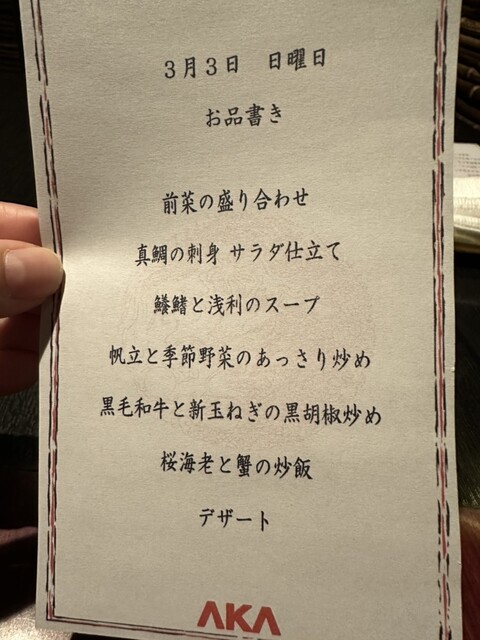 ３月３日　日曜日
お品書き
前菜の盛り合わせ
真鯛の刺身 サラダ仕立て
鱶鰭と浅利のスープ
帆立と季節野菜のあっさり炒め
黒毛和牛と新玉ねぎの黒胡椒炒め
桜海老と蟹の炒飯
デザート
AKA